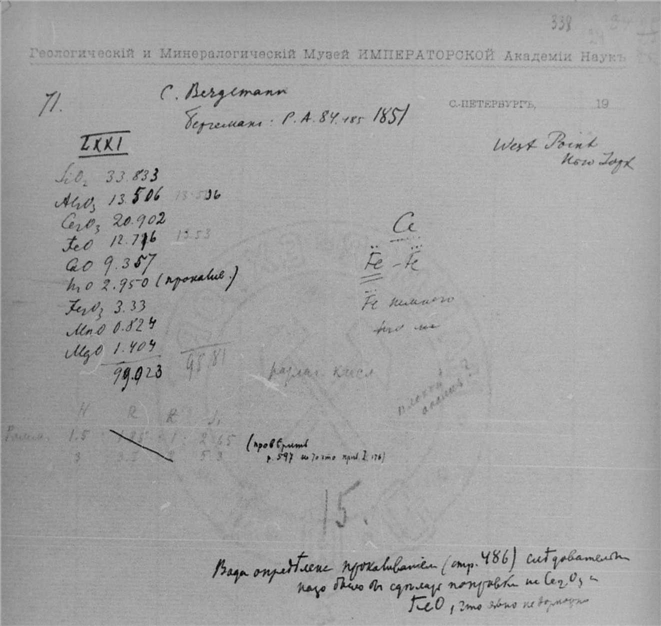 338
Геологическій и Минералогическій Музей ИМПЕРАТОРСКОЙ Академіи Наукъ
С.-ПЕТЕРБУРГЪ, 19
71.
C. Bergemann
Бергеманъ: P. A. 84. 485 1851
West Point
New York
LXXI
SiO2 33.833
Al2O3 13.506
Ce2O3 20.902
FeO 12.716 13.53
CaO 9.357
H2O 2.950 (прокалив.)
Fe2O3 3.33
MnO 0.824
MgO 1.404
99.023
Ce
Fe - Fe
Fe немного
разлаг. кисл
плохой
анализъ?
H R R Si
1.5 1 2.65
3 2 5.3
(провѣрить
p. 597
15.
Вода опредѣлена прокаливаніемъ (стр. 486) слѣдовательно
надо было бы сдѣлать поправки на Ce2O3 и
FeO, что явно невозможно